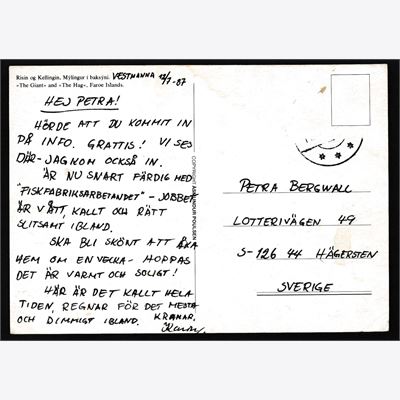 Risin og Kellingin, Mýlingur i baksýni.
«The Giant» and «The Hag», Faroe Islands.
VESTMANNA 12/7-87
HEJ PETRA!
HÖRDE ATT DU KOMMIT IN
PÅ INFO. GRATTIS! VI SES
DÄR - JAG KOM OCKSÅ IN.
ÄR NU SNART FÄRDIG MED
"FISKFABRIKSARBETANDET" - JOBBET
ÄR VÅTT, KALLT OCH RÄTT
SLITSAMT IBLAND.
SKA BLI SKÖNT ATT ÅKA
HEM OM EN VECKA - HOPPAS
DET ÄR VARMT OCH SOLIGT!
HÄR ÄR DET KALLT HELA
TIDEN, REGNAR FÖR DET MESTA
OCH DIMMIGT IBLAND. KRAMAR,
COPYRIGHT ÁSMUNDUR POULSEN
PETRA BERGWALL
LOTTERIVÄGEN 49
S-126 44 HÄGERSTEN
SVERIGE